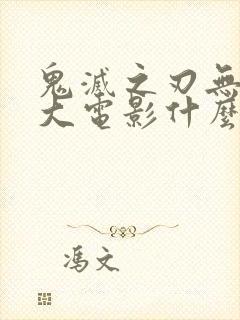 鬼滅之刃無
大電影什麼
馮文